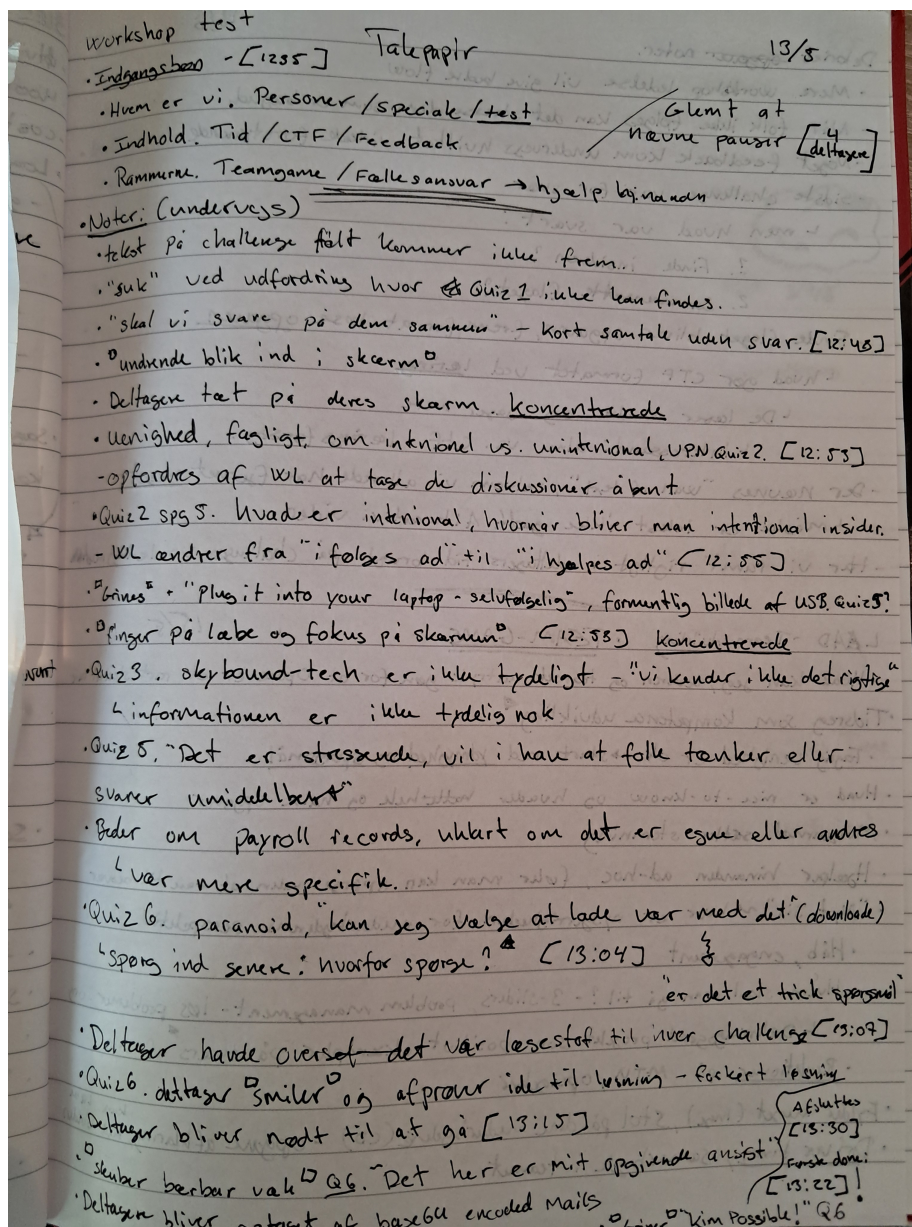 workshop test
Talepapir
13/5
· Indgangsbøn - [1235]
· Hvem er vi. Personer / speciale / test
Glemt at
nævne pauser [4 deltagere]
· Indhold. Tid / CTF / Feedback
· Rammerne. Teamgame / Fællesansvar → hjælp hinanden
· Noter: (undervejs)
· tekst på challenge fält kommer ikke frem..
· "suk" ved udfordring hvor Quiz 1 ikke kan findes.
· "skal vi svare på dem sammen" - kort samtale uden svar. [12:48]
· "undrende blik ind i skærm"
· Deltagere tæt på deres skærm. koncentrerede
· uenighed, fagligt, om intenionel vs. unintenional, UPN Quiz 2. [12:53]
- opfordres af WL at tage de diskussioner åbent
· Quiz 2 spg 5. hvad er intenional, hvornår bliver man intentional insider.
- WL ændrer fra "i følges ad" til "i hjælpes ad" [12:55]
· "Grines" + "Plug it into your laptop - selvfølgelig", formentlig billede af USB, Quiz 5?
· "finger på læbe og fokus på skærmen" [12:53] koncentrerede
· Quiz 3. skybound-tech er ikke tydeligt - "vi kender ikke det rigtige"
└ informationen er ikke tydelig nok
· Quiz 5. "Det er stressende, vil i have at folk tænker eller
svarer umidelbart"
· Beder om payroll records, uklart om det er egne eller andres
└ vær mere specifik.
· Quiz 6. paranoid, "kan jeg vælge at lade vær med det" (downloade)
└ spørg ind senere: hvorfor spørge? [13:04]
"er det et trick spørgsmål"
· Deltager havde overset det var læsestof til hver challenge [13:07]
· Quiz 6. deltager "smiler" og afprøver ide til løsning - forkert løsning
· Deltager bliver nødt til at gå [13:15]
Afsluttes
[13:30]
Første done:
[13:22]!
· "skuber bærbar væk" Q6. "Det her er mit opgivende ansigt"
· Deltagere bliver af base64 encoded mails
"Kim Possible!" Q6